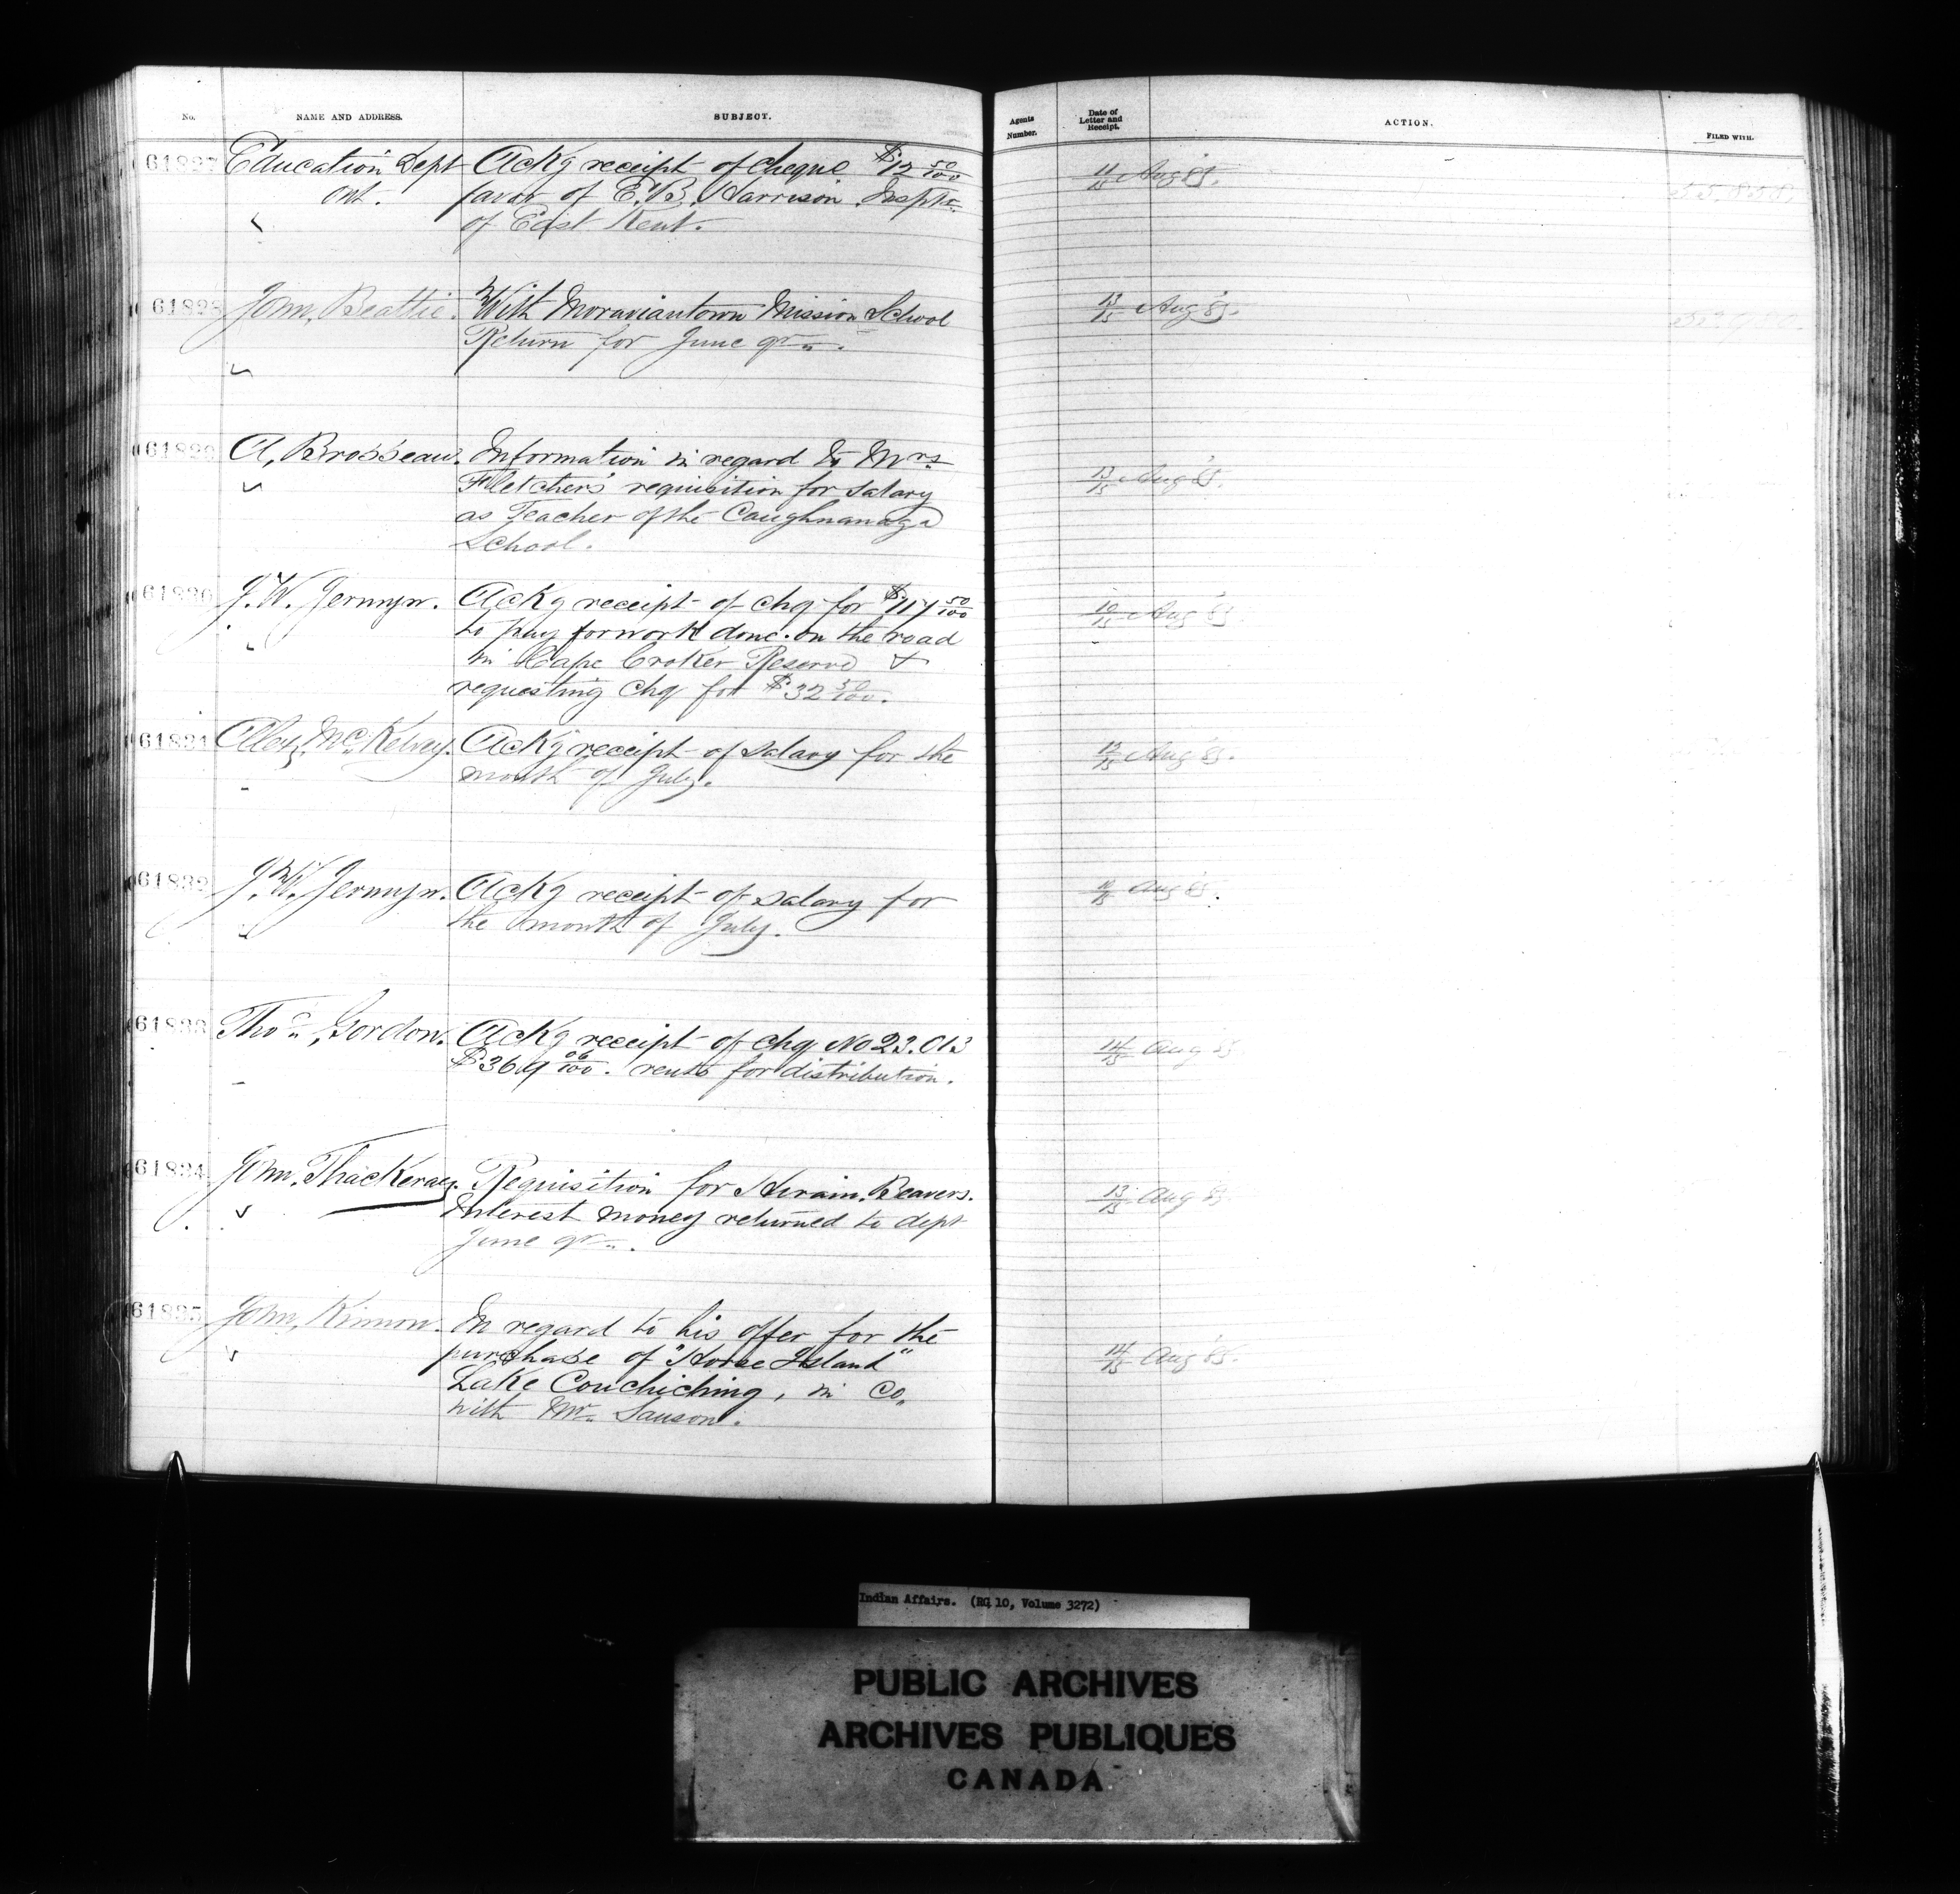 No. NAME AND ADDRESS. SUBJECT. Agents Number. Date of Letter and Receipt. ACTION. FILED WITH.
61827 Education Dept Ackg receipt of cheque $12 50/100 11/15 Aug 85.
Ont. favor of E.B. Harrison Insptr
of East Kent.
61828 John, Beattie. With Moraviantown Mission School 13/15 Aug 85.
Return for June qr.
61829 A, Brosseau. Information in regard to Mrs 13/15 Aug 85.
Fletcher's requisition for salary
as Teacher of the Caughnanaga
School.
61830 J. W. Jermyn. Ackg receipt of chq for $117 50/100 10/15 Aug 85
to pay for work done on the road
in Cape Croker Reserve &
requesting chq for $32 50/100.
61831 Alex, McKelvey. Ackg receipt of salary for the 12/15 Aug 85.
month of July.
61832 J. W. Jermyn. Ackg receipt of salary for Aug 85.
the month of July.
61833 Thos, Gordon. Ackg receipt of chq No 23.013 14/15 Aug 85
$369 06/100. rents for distribution.
61834 John. Thackeray. Requisition for Hiram. Beavers. 13/15 Aug 85
Interest money returned to dept
June qr.
61835 John, Kinnon. In regard to his offer for the 14/15 Aug 85.
purchase of "Horse Island"
Lake Couchiching, in Co,
with Mr. Sanson.
Indian Affairs. (RG 10, Volume 3272)
PUBLIC ARCHIVES
ARCHIVES PUBLIQUES
CANADA